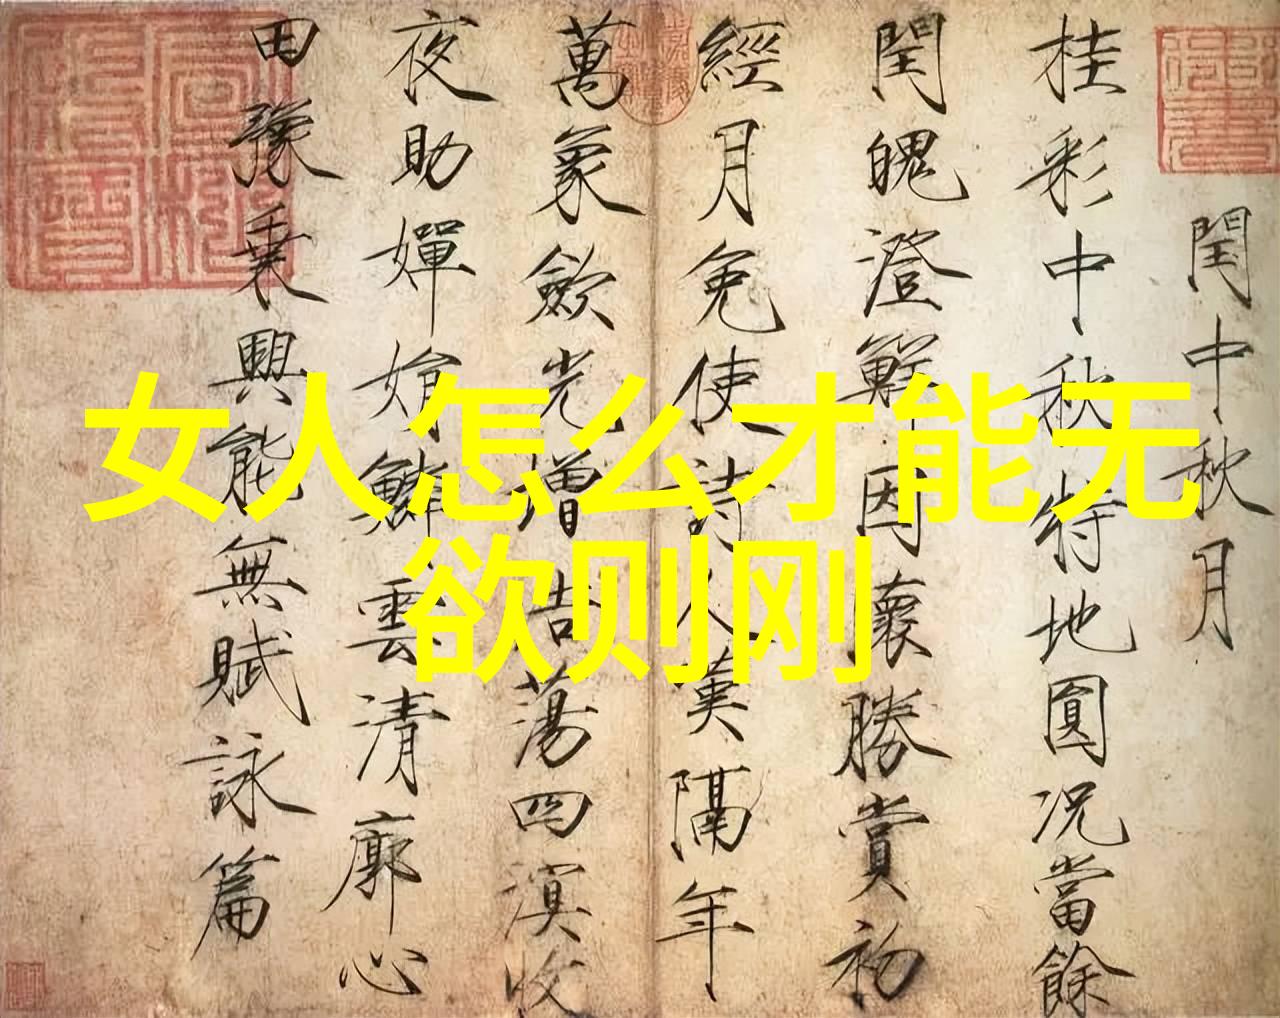 女人怎么才能无
欲则刚
閏中秋月
桂彩中秋特地圓況當餘
閏魄澄鮮因懷勝賞初
經月免使詩人嘆隔年
萬象歛光增浩蕩四溟收
夜助嬋娟鱗雲清廓心
田豫乗興能無賦詠篇